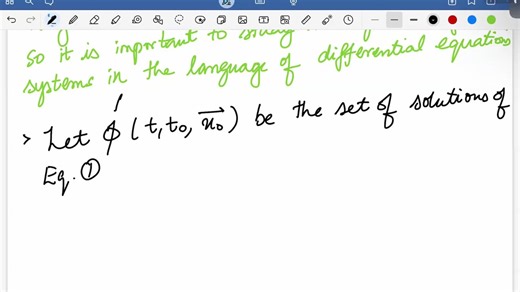 so it is important to study
systems in the language of differential equation
> Let ϕ (t, t₀, x₀⃗) be the set of solutions of
Eq. ①